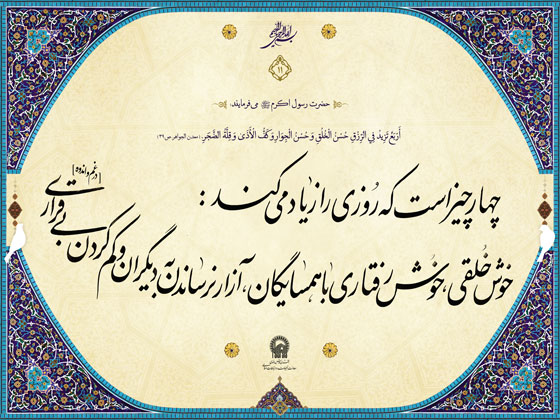 ۱۱
حضرت رسول اکرم ﷺ می‌فرمایند
أَرْبَعٌ تَزِيدُ فِي الرِّزْقِ حُسْنُ الْخُلْقِ وَ حُسْنُ الْجِوارِ وَ كَفُّ الْأَذَىٰ وَ قِلَّةُ الضَّجَرِ. (معدن الجواهر، ص۳۹)
چهار چیز است که رُوزی را زیاد می‌کند :
خوش خُلقی، خُوش رفتاری با همسایگان، آزار نرساندن به دیگران و کم کردن بی‌قراری [در غم و اندوه]